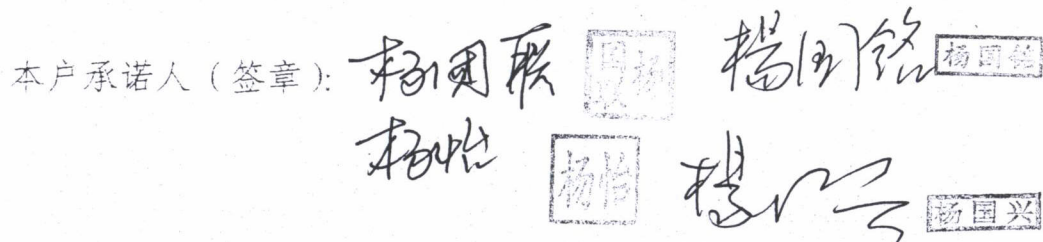 本户承诺人（签章）：杨国联 杨国联 楊国铭 杨国铭
杨怡 杨怡 楊兴 杨国兴